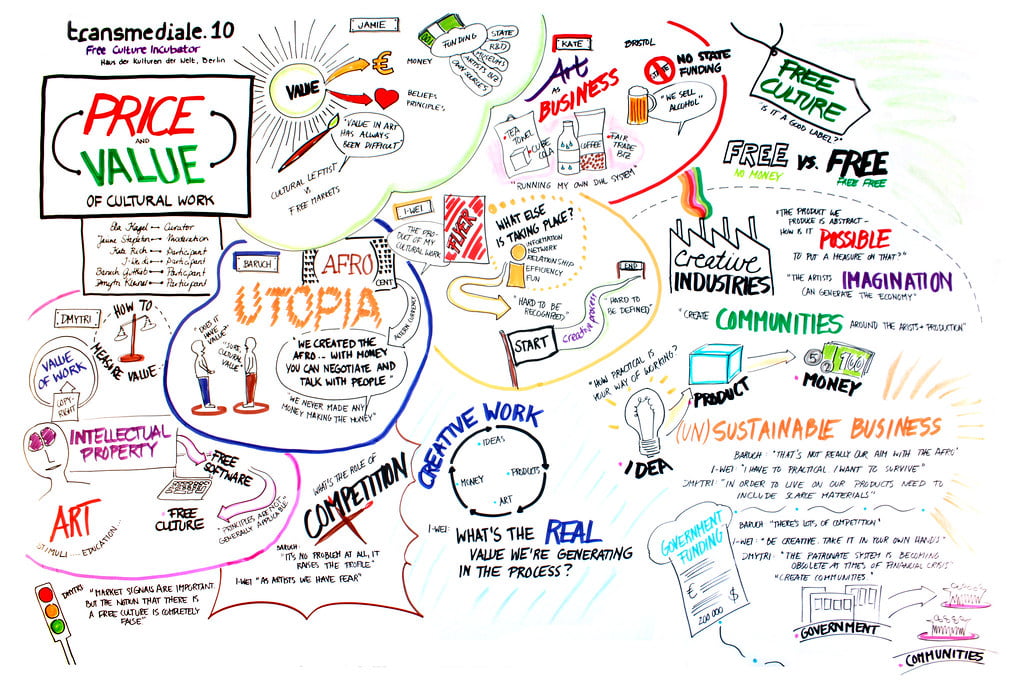 transmediale.10
Free Culture Incubator
Haus der Kulturen der Welt, Berlin
PRICE
AND
VALUE
OF CULTURAL WORK
Ela Kagel Curator
Moderation
Kate Rich Participant
I-Wei Li Participant
Baruch Gottlieb Participant
Dmytri Kleiner Participant
JAMIE
VALUE
€
MONEY
BELIEFS
PRINCIPLES
"VALUE IN ART
HAS ALWAYS
BEEN DIFFICULT"
CULTURAL LEFTIST
VS
FREE MARKETS
FUNDING
STATE
R&D
MUSEUMS
ARTISTS BIZ
OWN SOURCES
KATE
BRISTOL
Art
AS
BUSINESS
STATE
NO STATE
FUNDING
"WE SELL
ALCOHOL"
TEA
TOWEL
CUBE
COLA
COFFEE
FAIR
TRADE
BIZ
"RUNNING MY OWN DHL SYSTEM"
FREE
CULTURE
"IS IT A GOOD LABEL?"
FREE VS. FREE
NO MONEY
FREE FREE
I-WEI
THE PRO-
DUCT OF MY
CULTURAL WORK
FLYER
WHAT ELSE
IS TAKING PLACE?
INFORMATION
NETWORK
RELATIONSHIP
EFFICIENCY
FUN
"HARD TO BE
RECOGNIZED"
END
"HARD TO
BE DEFINED"
creative process
START
creative
INDUSTRIES
"THE PRODUCT WE
PRODUCE IS ABSTRACT –
HOW IS IT POSSIBLE
TO PUT A MEASURE ON THAT?"
"THE ARTISTS IMAGINATION
CAN GENERATE THE ECONOMY"
"CREATE COMMUNITIES AROUND THE ARISTS + PRODUCTION"
BARUCH
AFRO
CENT
UTOPIA
ALTERN CURRENCY
"DOES IT
HAVE
VALUE"
"SURE,
CULTURAL
VALUE"
"WE CREATED THE
AFRO... WITH MONEY
YOU CAN NEGOTIATE AND
TALK WITH PEOPLE"
"WE NEVER MADE ANY
MONEY MAKING THE MONEY"
DMYTRI
HOW TO
MEASURE VALUE...
VALUE
OF WORK
COPY-
RIGHT
INTELLECTUAL
PROPERTY
FREE
SOFTWARE
FREE
CULTURE
"PRINCIPLES ARE NOT
GENERALLY APPLICABLE"
ART
STIMULI .... EDUCATION...
DMYTRI
"MARKET SIGNALS ARE IMPORTANT.
BUT THE NOTION THAT THERE IS
A FREE CULTURE IS COMPLETELY
FALSE"
WHAT'S THE ROLE OF
COMPETITION
BARUCH:
"IT'S NO PROBLEM AT ALL, IT
RAISES THE PROFILE"
I-WEI "AS ARTISTS WE HAVE FEAR"
CREATIVE WORK
IDEAS
PRODUCTS
ART
MONEY
I-WEI:
WHAT'S THE REAL
VALUE WE'RE GENERATING
IN THE PROCESS?
"HOW PRACTICAL IS
YOUR WAY OF WORKING?"
IDEA
PRODUCT
5 2 100
MONEY
(UN)SUSTAINABLE BUSINESS
BARUCH: "THAT'S NOT REALLY OUR AIM WITH THE AFRO"
I-WEI: "I HAVE TO PRACTICAL. I WANT TO SURVIVE"
DMYTRI: "IN ORDER TO LIVE ON OUR PRODUCTS NEED TO
INCLUDE SCARCE MATERIALS"
GOVERNMENT
FUNDING
€ $
200 000
BARUCH "THERE'S LOTS OF COMPETITION."
I-WEI: "BE CREATIVE. TAKE IT IN YOUR OWN HANDS"
DMYTRI: "THE PATRONATE SYSTEM IS BECOMING
OBSOLETE AS TIMES OF FINANCIAL CRISIS"
"CREATE COMMUNITIES"
GOVERNMENT
COMMUNITIES